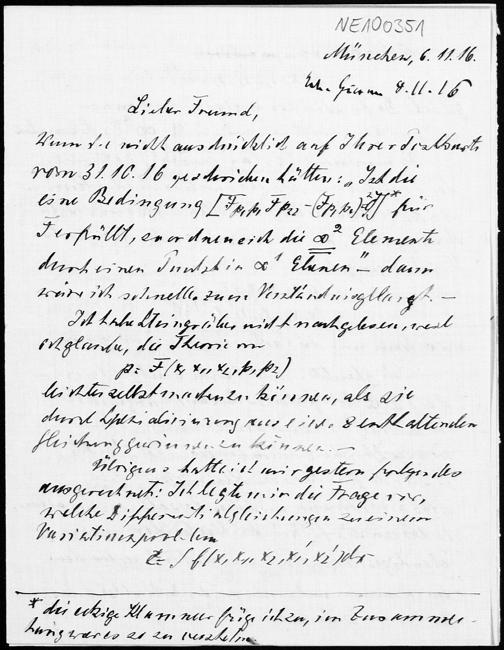 NE100351
München, 6.11.16.
8.11.16
Lieber Freund,
Wenn Sie nicht ausdrücklich auf Ihrer Postkarte
vom 31.10.16 geschrieben hätten: „Ist die
eine Bedingung für
F erfüllt, so ordnen sich die ∞² Elemente
durch einen Punkt in ∞¹ Ebenen" – dann
wäre ich schneller zum Verständnis gelangt. –
Ich habe nicht nachgelesen, weil
ich glaube, die Theorie von
leichter selbst machen zu können, als sie
durch Spezialisierung aus enthaltenden
Gleichung gewinnen zu können. –
Übrigens hatte ich mir gestern folgendes
ausgerechnet: Ich legte mir die Frage vor,
welche Differentialgleichungen zu einem
Variationsproblem
* die eckige Klammer füge ich zu, im Zusammen-
hang war es so zu verstehen.